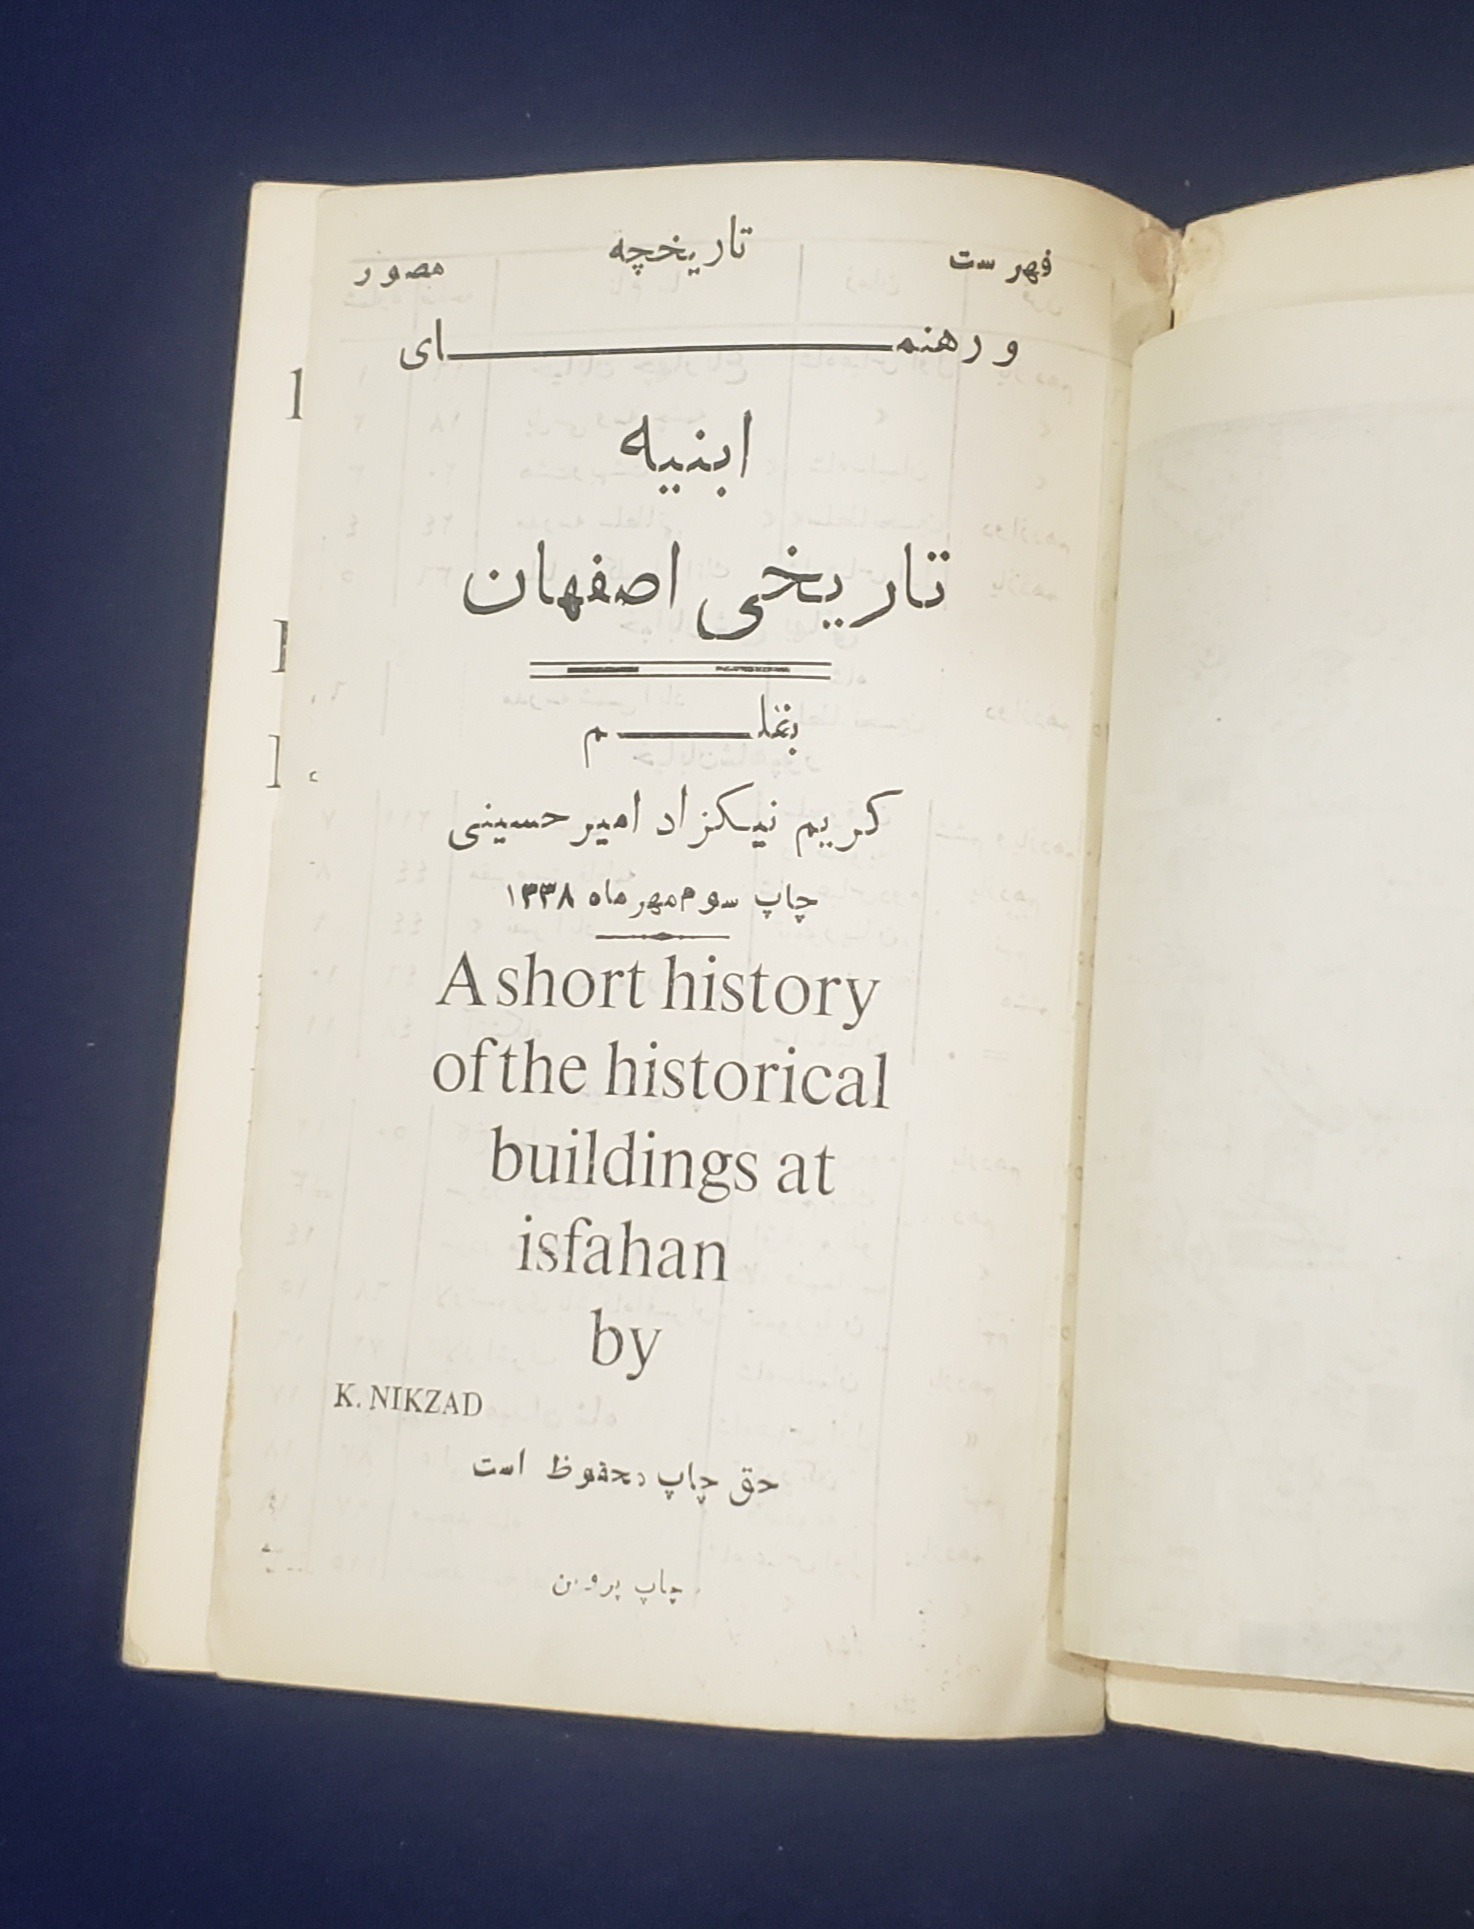 فهرست تاریخچه مصور
و رهنمای
ابنیه
تاریخی اصفهان
بقلم
کریم نیکزاد امیرحسینی
چاپ سوم مهر ماه ۱۳۳۸
A short history
of the historical
buildings at
isfahan
by
K. NIKZAD
حق چاپ محفوظ است
چاپ پروین